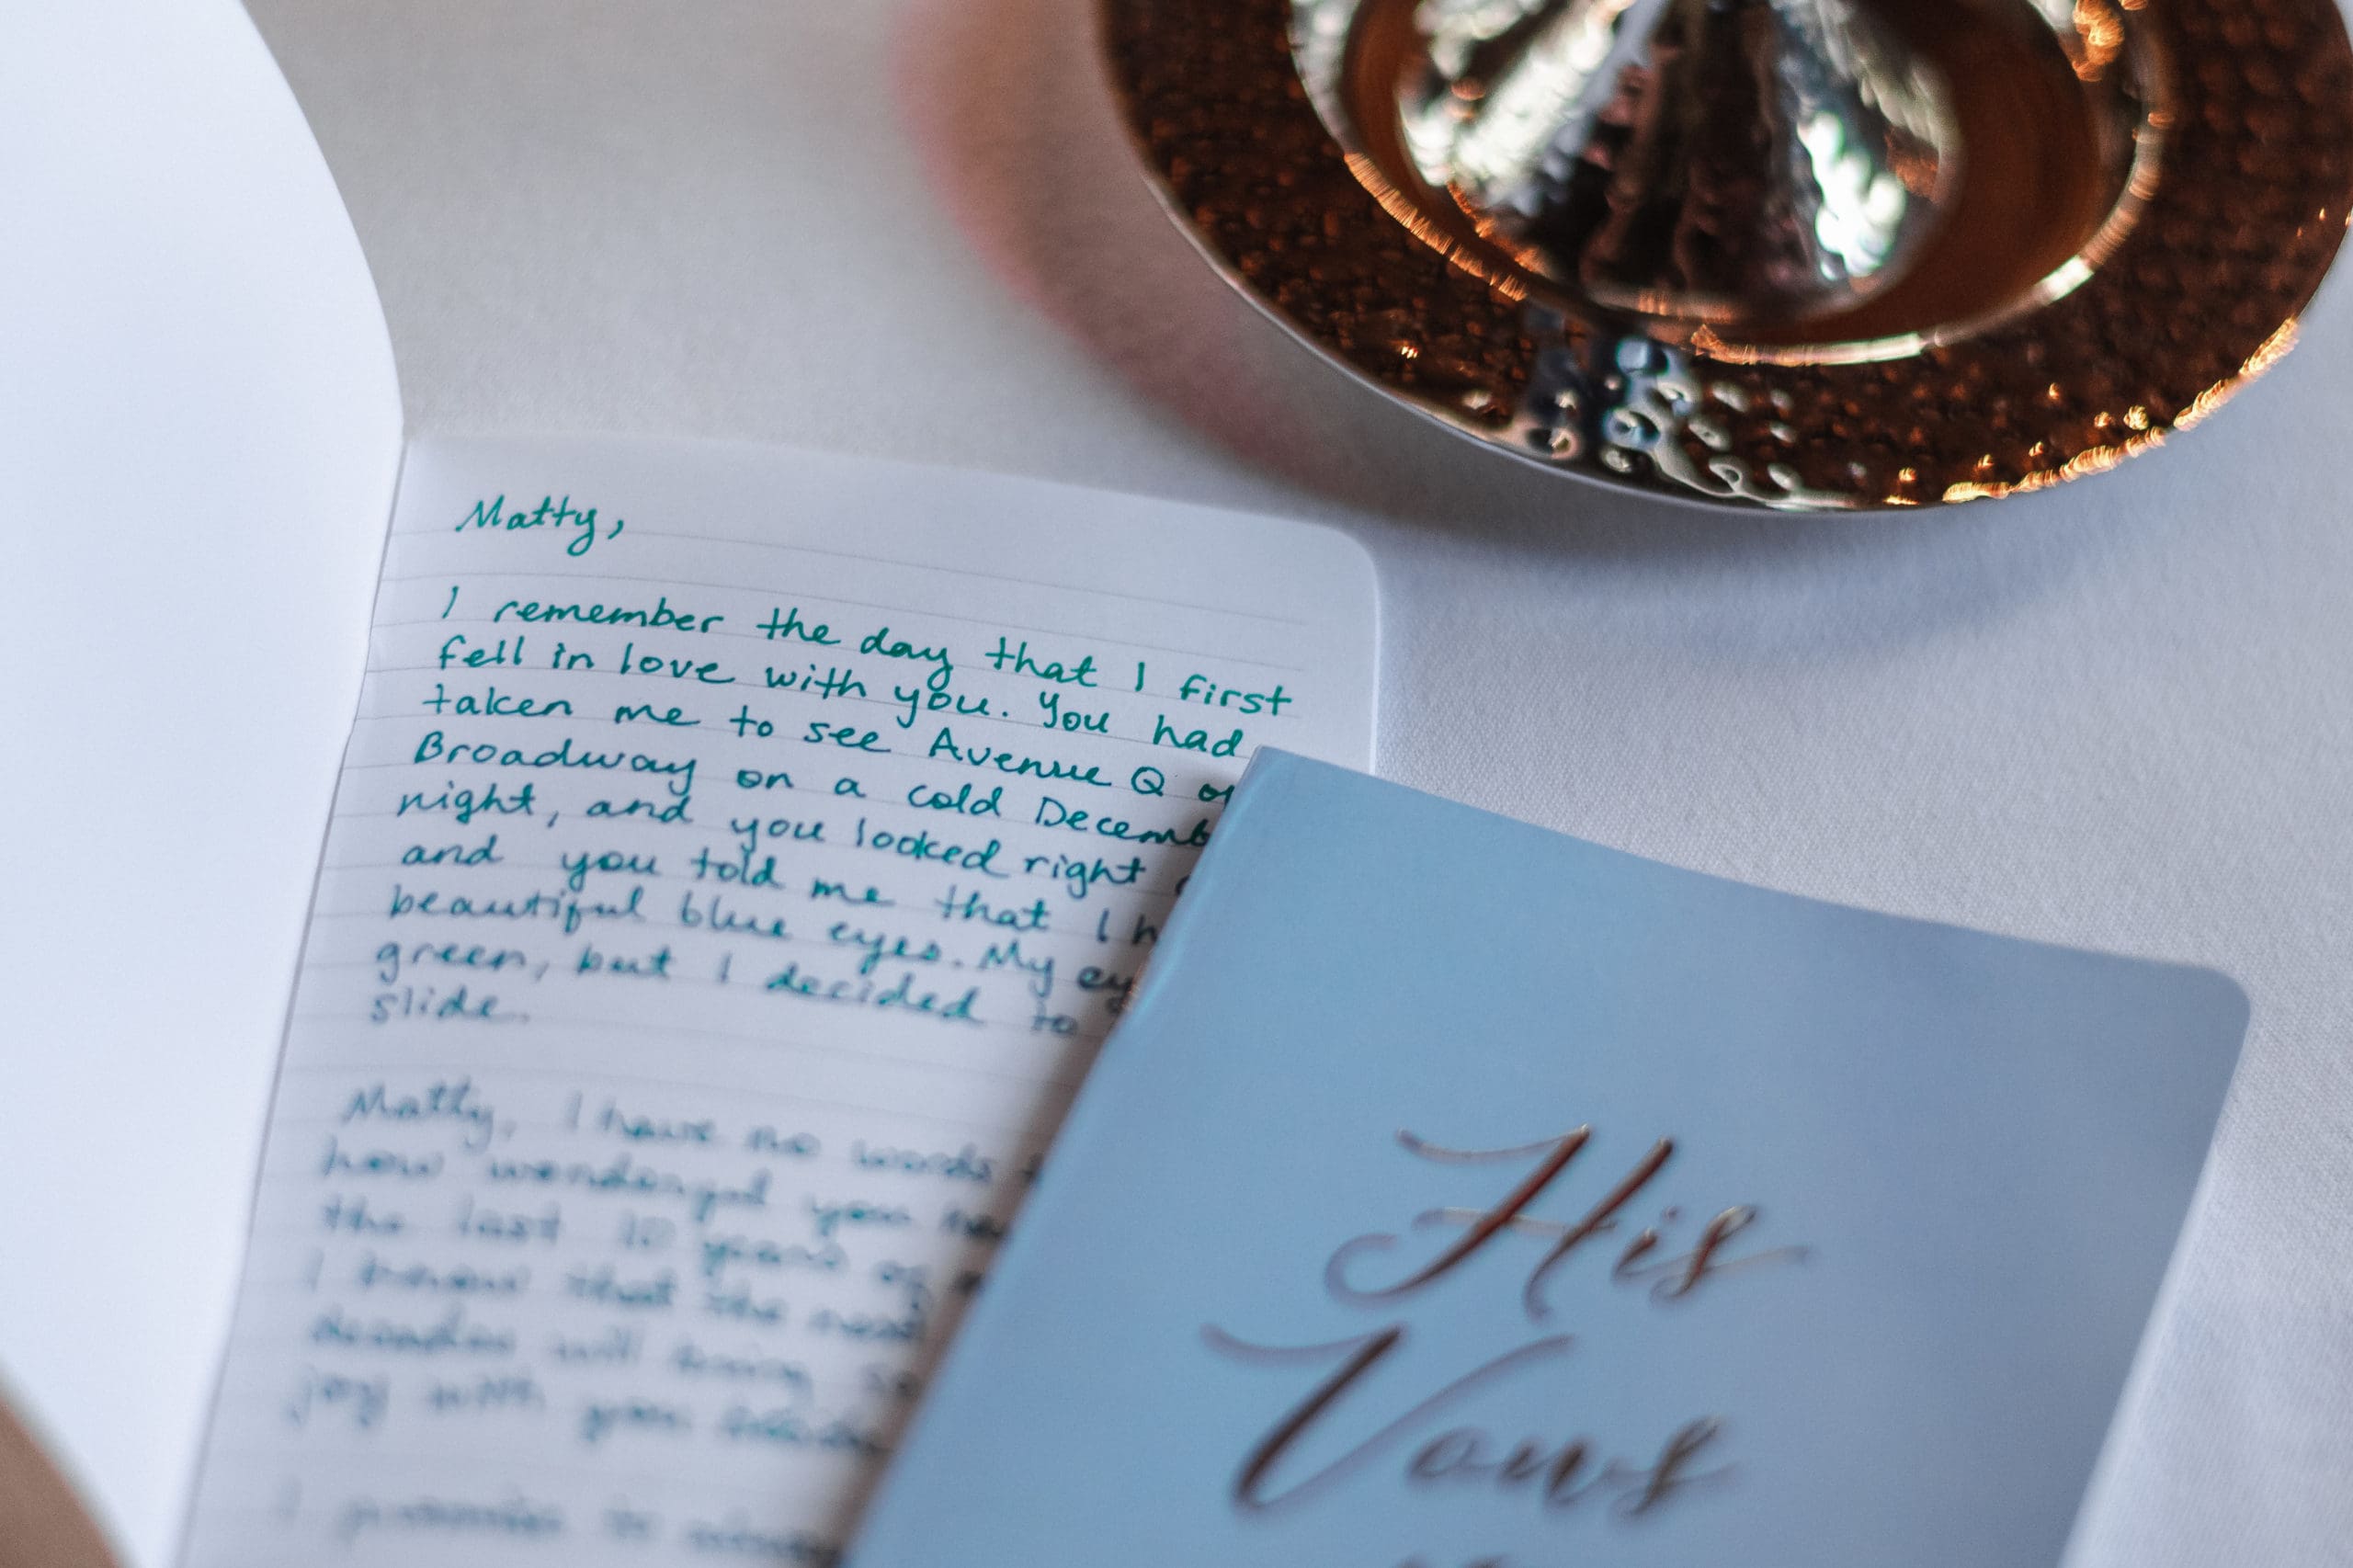 Matty,
I remember the day that I first
fell in love with you. You had
taken me to see Avenue Q
Broadway on a cold Decemb
night, and you looked right
and you told me that I h
beautiful blue eyes. My ey
green, but I decided to
slide.
Matty, I have no words
how wonderful you
the last 10 years of
I know that the next
decades will bring
joy with you
I promise to
His
Vows